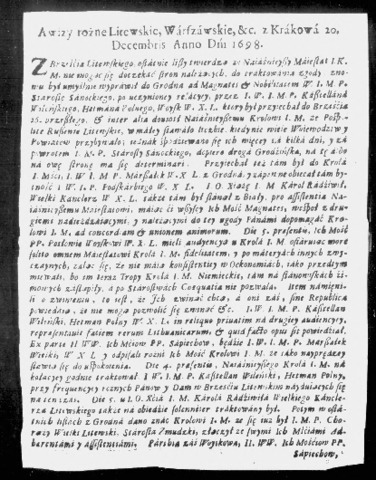 Awizy rożne Litewskie, Wárszáwskie, &c. z Krákowá 20.
Decembris Anno Dñi 1698.
Z Brześcia Litewskiego, ostátnie listy twierdzą że Naiáśnieyszy Máiestat I K.
M. nie mogąc się doczekáć stron należących, do tráktowánia zgody znowu
był umyślnie wypráwił do Grodná ad Magnates & Nobilitatem W I M P.
Stárostę Sánockiego, po uczynioney reláciey, przez I. W. I. M. P. Kásztelláná
Wileńskiego, Hetmaná Polnego, Woysk W. X. L. ktory był przyiechał do Brześcia
25. przeszłego, & inter alia doniosł Naiáśnieyszemu Krolowi I M. że Pospolite
Ruszenie Litewskie, w máłey stánęło liczbie, kiedy nie wiele Woiewodztw y
Powiátow przybywáło; iednák spodziewáno się ich między tą kilká dni, y zá
powrotem I. M. P. Stárosty Sánockiego, dopiero drogá Grodzińska, ná tę ábo
ná owę stronę ma się determinari. Przyiechał też tám był do Krolá
I Mści, I. W. I M P. Márszáłek W. X L z Grodná, y zápewne obiecał tám bytność
I. W. I. P. Podskárbiego W. X L. I O. Xiążę I M. Károl Rádziwił,
Wielki Kánclerz W X L. tákże tám był stánął z Białey, pro assistentia Naiáśnieyszemu
Máiestatowi, máiąc i wszyscy Ich Mość Magnates, wespoł z drugiemi
nádciedzáiącymi, y náleżącymi do tey ugody Pánámi dopomagáć Krolowi
I. M. ad concordiam & unionem animorum. Die 5. præsentis, Ich Mość
PP. Posłowie Woyskowi W X L. mieli audyencyą u Krolá I M. ofiáruiąc more
solito omnem Maiestatowi Krolá I M. fidelitatem, y po máteryách innych zmyczáynych,
żaląc się, że nie máią konsistentiey w Oekonomiách, iáko przedtym
miewáli, bo im teraz Trzpy Krolá I M. Niemieckie, tám ná stánowiskách zimowych
zástąpiły, á po Stárostwách Coæquatia nie pozwala. Item námienili
o zwinieniu, to iest, że Ich zwináć chcą, á oni záś, sine Republica
powiedzą, że nie mogą pozwolić się zwináć &c. I. W. I. M. P. Kásztellan
Wileński, Hetman Polny W X. L. in reliquo privatim ná drugiey audiencyey,
repræsentuiąc statum rerum Lithuanicarum, & quid facto opus sit powiedział.
Ex parte II WW. Ich Mćiow PP. Sápiehow, będzie I. W. I M. P. Márszáłek
Wielki, W X. L y odpisáli rożni Ich Mość Krolowi I. M. że iáko nayprędzey
stáwią się do uspokoienia. Die 4. præsentis, Naiáśnieyszego Krolá I. M. ná
kolácyey godnie tráktował I W. I. M P. Kásztellan Wileński, Hetman Polny,
przy frequencyey rożnych Pánow y Dam w Brześciu Litewskim náyduiących się
ná ten czás. Die 5. u I. O. Xcia I M. Károlá Rádziwiłá Wielkiego Kánclerzá
Litewskiego tákże ná obiedzie solenniter tráktowány był. Potym w ostátnich
listách z Grodná dáno znáć Krolowi I M. że się też był I. M. P. Chorąży
Wielki Litewski. Stárostá Żmudzki, złączył ze swymi Ich Mściámi Adhærentámi
y assistentiámi. Partia záś Woyskowa, II. WW. Ich Mościow PP.
Sápiehow,